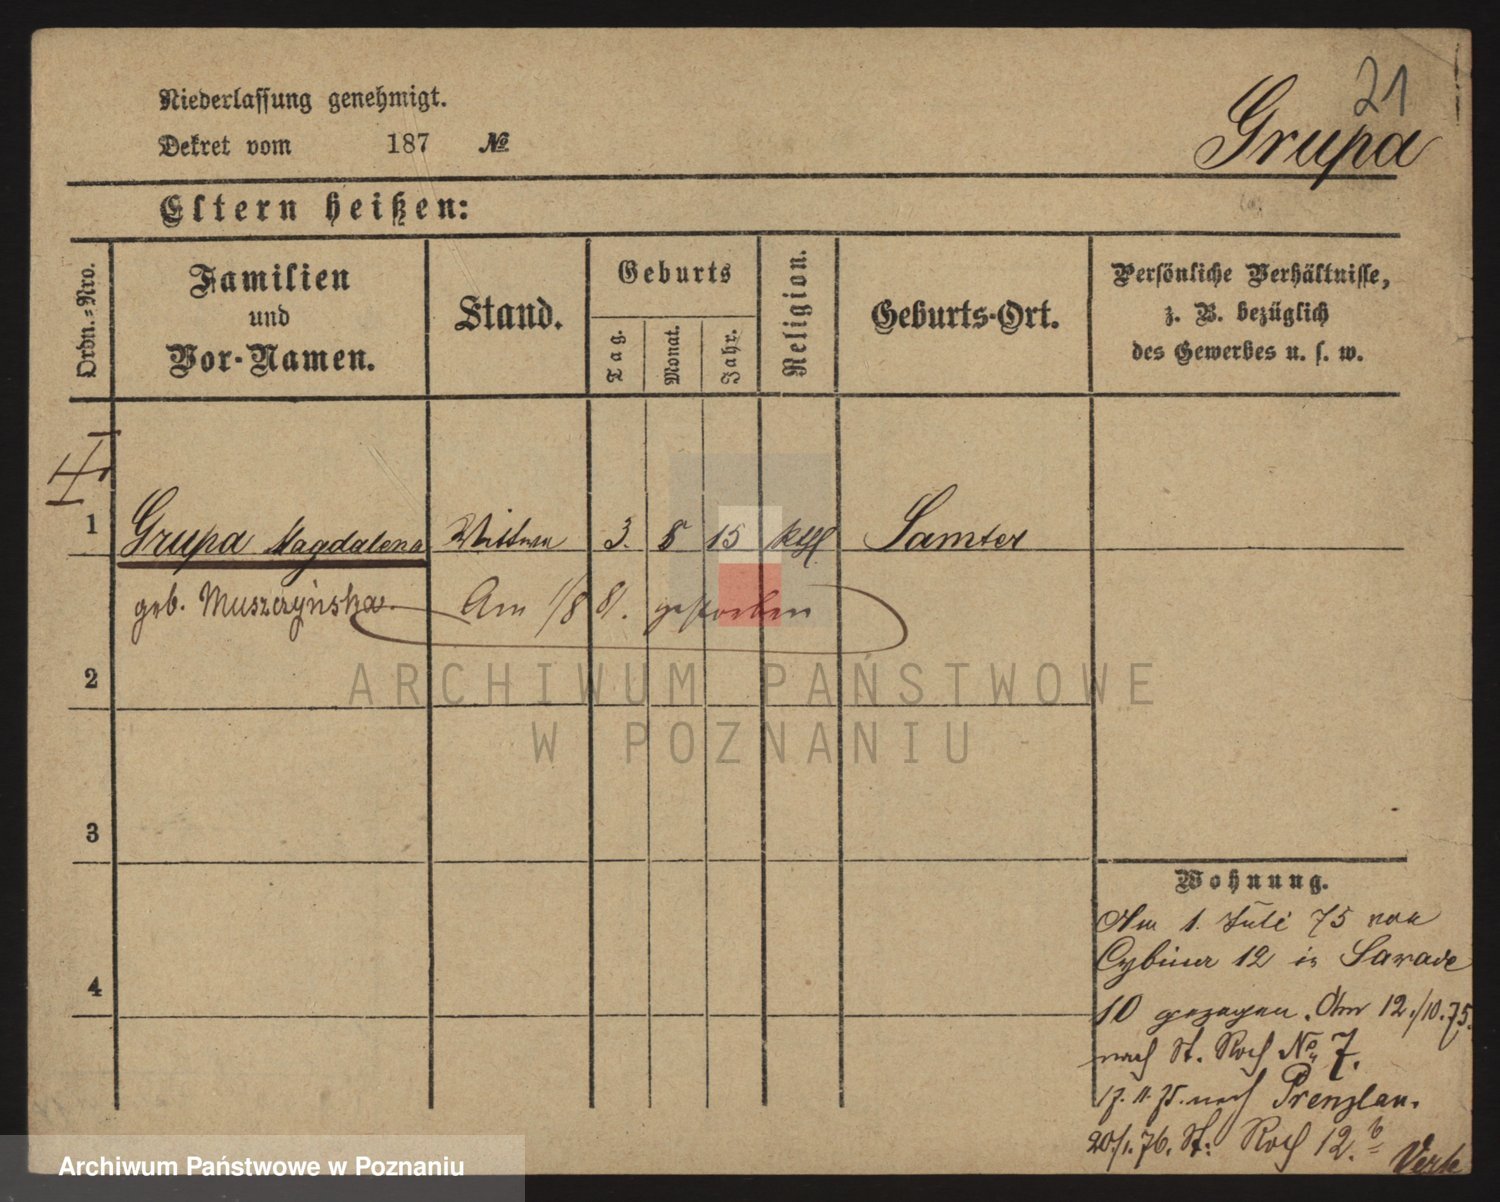 21
Niederlassung genehmigt.
Dekret vom 187 №
Grupa
Eltern heißen:
Ordn.-Nro.
Familien und Vor-Namen.
Stand.
Geburts
Tag.
Monat.
Jahr.
Religion.
Geburts-Ort.
Persönliche Verhältnisse,
z. B. bezüglich
des Gewerbes u. s. w.
1 Grupa Magdalena Wittwe 3. 8 15 kath. Samter
geb. Muszczyńska. Am 1/8 81. gestorben
2
3
4
Wohnung.
Am 1. Juli 75 von
Cybina 12 in Sawade
10 gezogen. Am 12./10.75.
nach St. Roch No 7.
17.11.75. nach Prenzlau.
20./1.76. St. Roch 12.b
ARCHIWUM PAŃSTWOWE
W POZNANIU
Archiwum Państwowe w Poznaniu